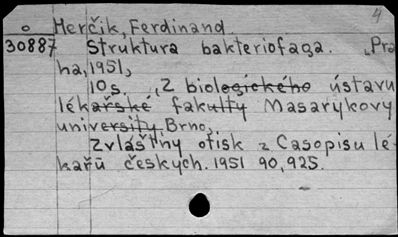 4
o Herčík, Ferdinand.
30887 Struktura bakteriofaga. Pra
ha, 1951,
10 s. , Z biologického ústavu
lékařské fakulty Masarykovy
university, Brno,
Zvláštny otisk z Casopisu lé-
kařů českych. 1951 90, 925.